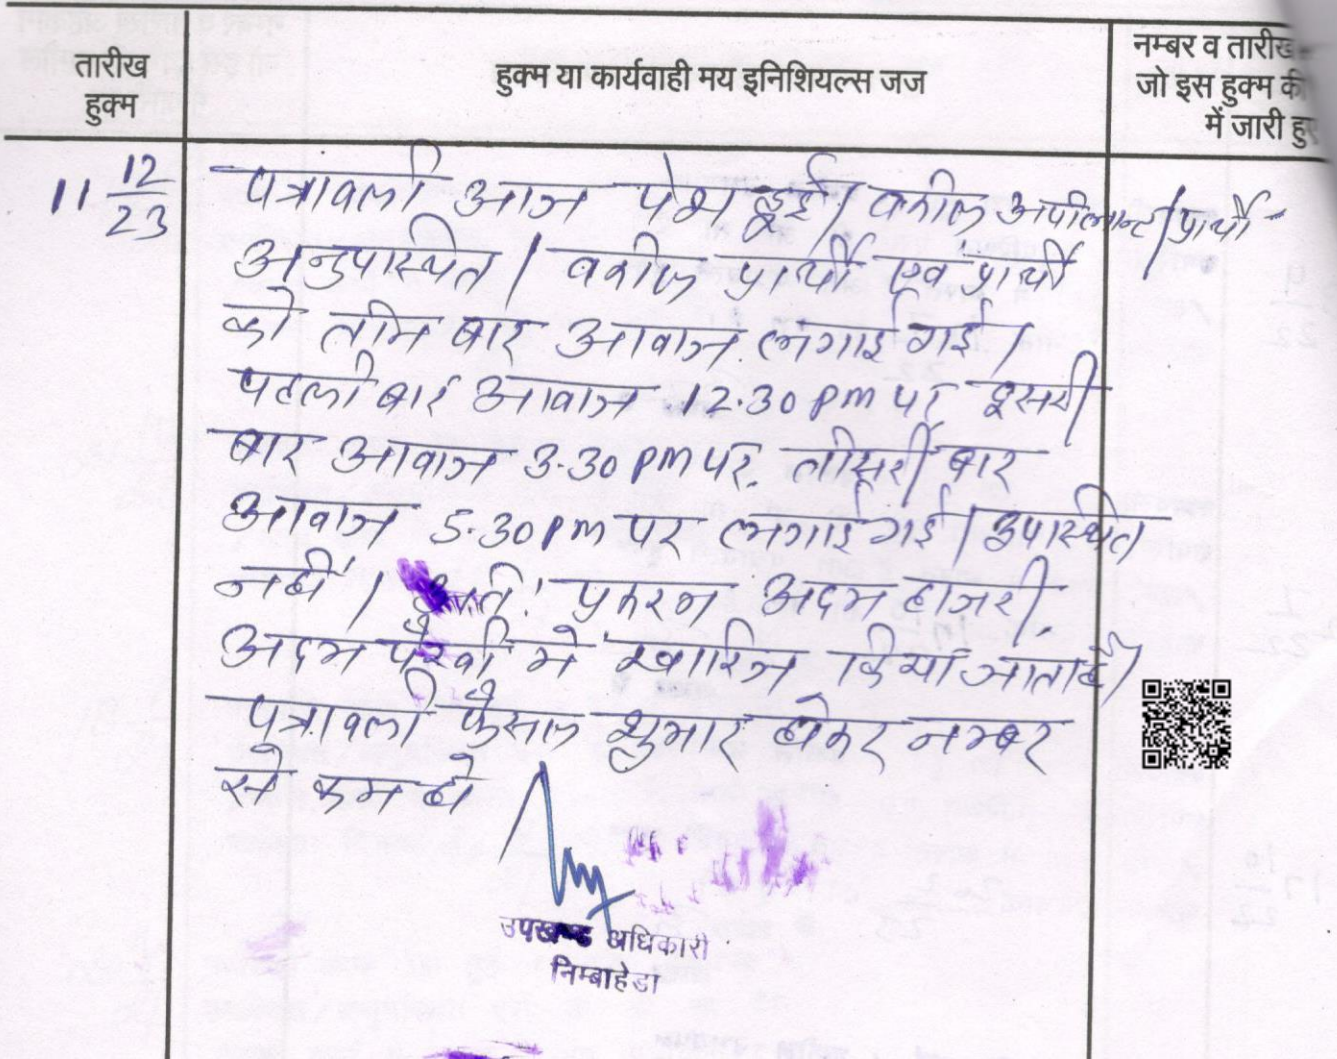 तारीख
हुक्म
हुक्म या कार्यवाही मय इनिशियल्स जज
नम्बर व तारीख
जो इस हुक्म की
में जारी हुए
11 12/23
पत्रावली आज पेश हुई। वकील अपीलान्ट/प्रार्थी
अनुपस्थित। वकील प्रार्थी एवं प्रार्थी
को तीन बार आवाज लगाई गई।
पहली बार आवाज 12.30 PM पर दूसरी
बार आवाज 3.30 PM पर. तीसरी बार
आवाज 5.30 PM पर लगाई गई। उपस्थित
नहीं। प्रकरन अदम हाजरी
अदम पैरवी मे खारिज किया जाता है।
पत्रावली फैसल शुमार होकर नम्बर
से कम हो
उपखण्ड अधिकारी
निम्बाहेडा